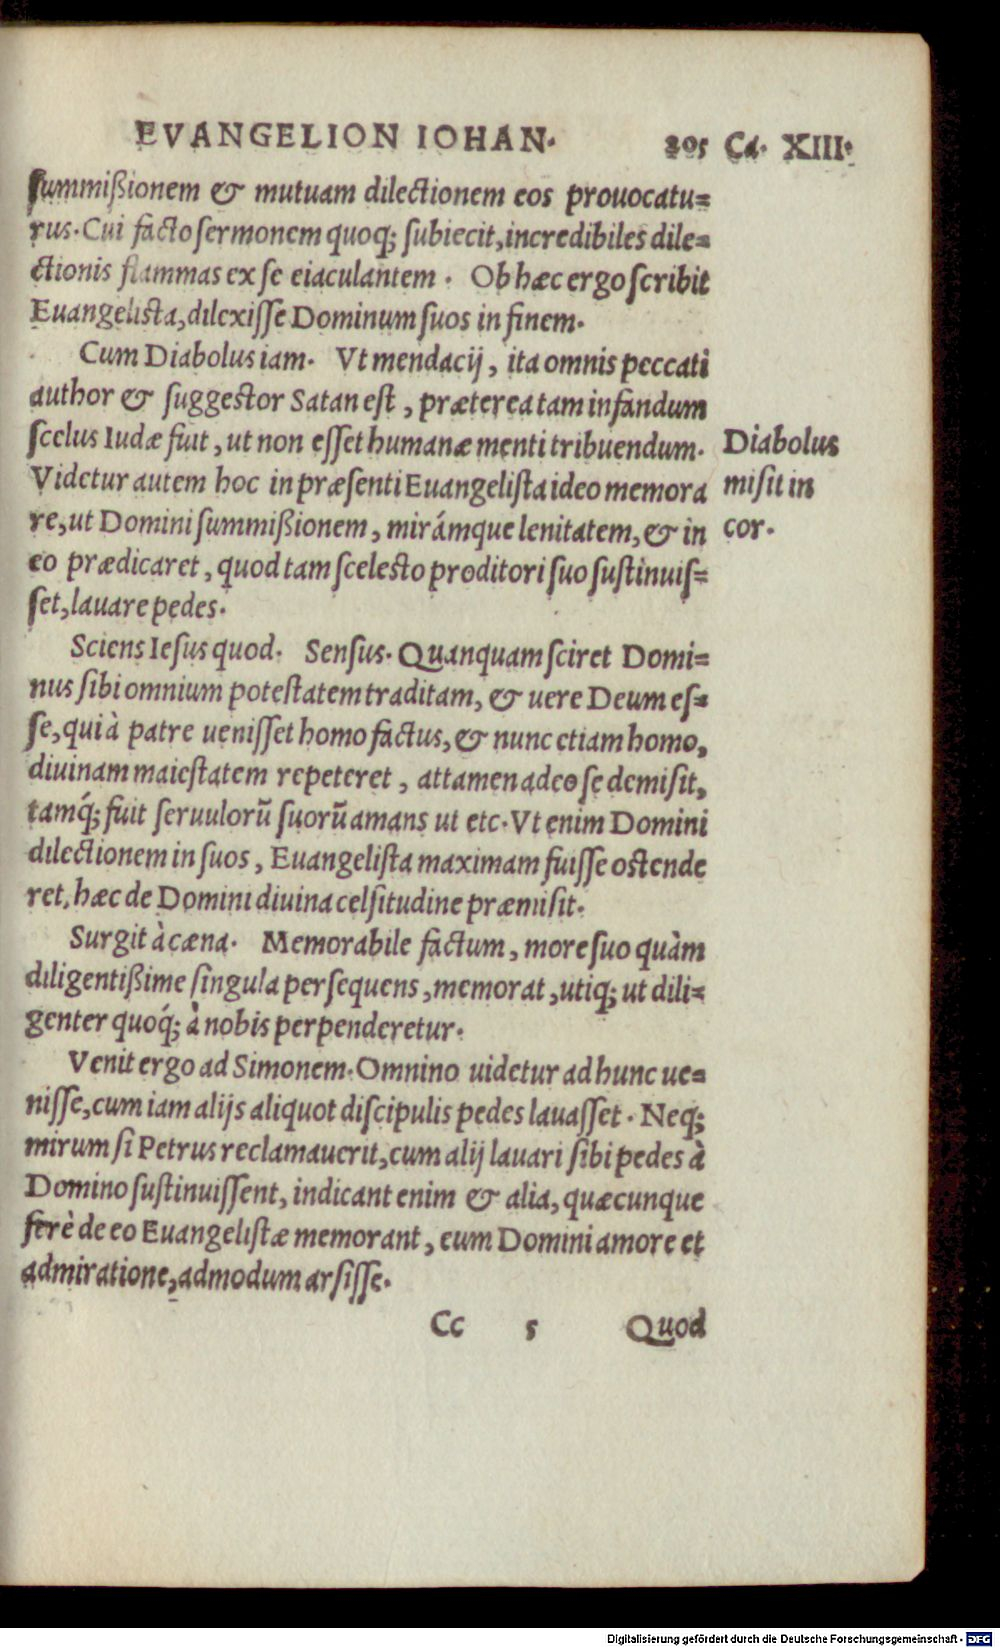 EVANGELION IOHAN. 205 Ca. XIII.
ſummiſsionem & mutuam dilectionem eos prouocatu=
rus. Cui facto ſermonem quoq; ſubiecit, incredibiles dile=
ctionis flammas ex ſe eiaculantem. Ob hæc ergo ſcribit
Euangeliſta, dilexiſſe Dominum ſuos in finem.
Cum Diabolus iam. Vt mendacij, ita omnis peccati
author & ſuggeſtor Satan eſt, præterea tam infandum
ſcelus Iudæ fuit, ut non eſſet humanæ menti tribuendum.
Videtur autem hoc in præſenti Euangeliſta ideo memora
re, ut Domini ſummiſsionem, mirámque lenitatem, & in
eo prædicaret, quod tam ſceleſto proditori ſuo ſuſtinuiſ=
ſet, lauare pedes.
Diabolus
miſit in
cor.
Sciens Ieſus quod. Senſus. Quanquam ſciret Domi=
nus ſibi omnium poteſtatem traditam, & uere Deum eſ=
ſe, qui à patre ueniſſet homo factus, & nunc etiam homo,
diuinam maieſtatem repeteret, attamen adeo ſe demiſit,
tamq́; fuit ſeruulorũ ſuorũ amans ut etc. Vt enim Domini
dilectionem in ſuos, Euangeliſta maximam fuiſſe oſtende
ret, hæc de Domini diuina celſitudine præmiſit.
Surgit à cæna. Memorabile factum, more ſuo quàm
diligentiſsime ſingula perſequens, memorat, utiq; ut dili=
genter quoq́; à nobis perpenderetur.
Venit ergo ad Simonem. Omnino uidetur ad hunc ue=
niſſe, cum iam alijs aliquot diſcipulis pedes lauaſſet. Neq;
mirum ſi Petrus reclamauerit, cum alij lauari ſibi pedes à
Domino ſuſtinuiſſent, indicant enim & alia, quæcunque
ferè de eo Euangeliſtæ memorant, eum Domini amore et
admiratione, admodum arſiſſe.
Cc 5 Quod
Digitalisierung gefördert durch die Deutsche Forschungsgemeinschaft - DFG